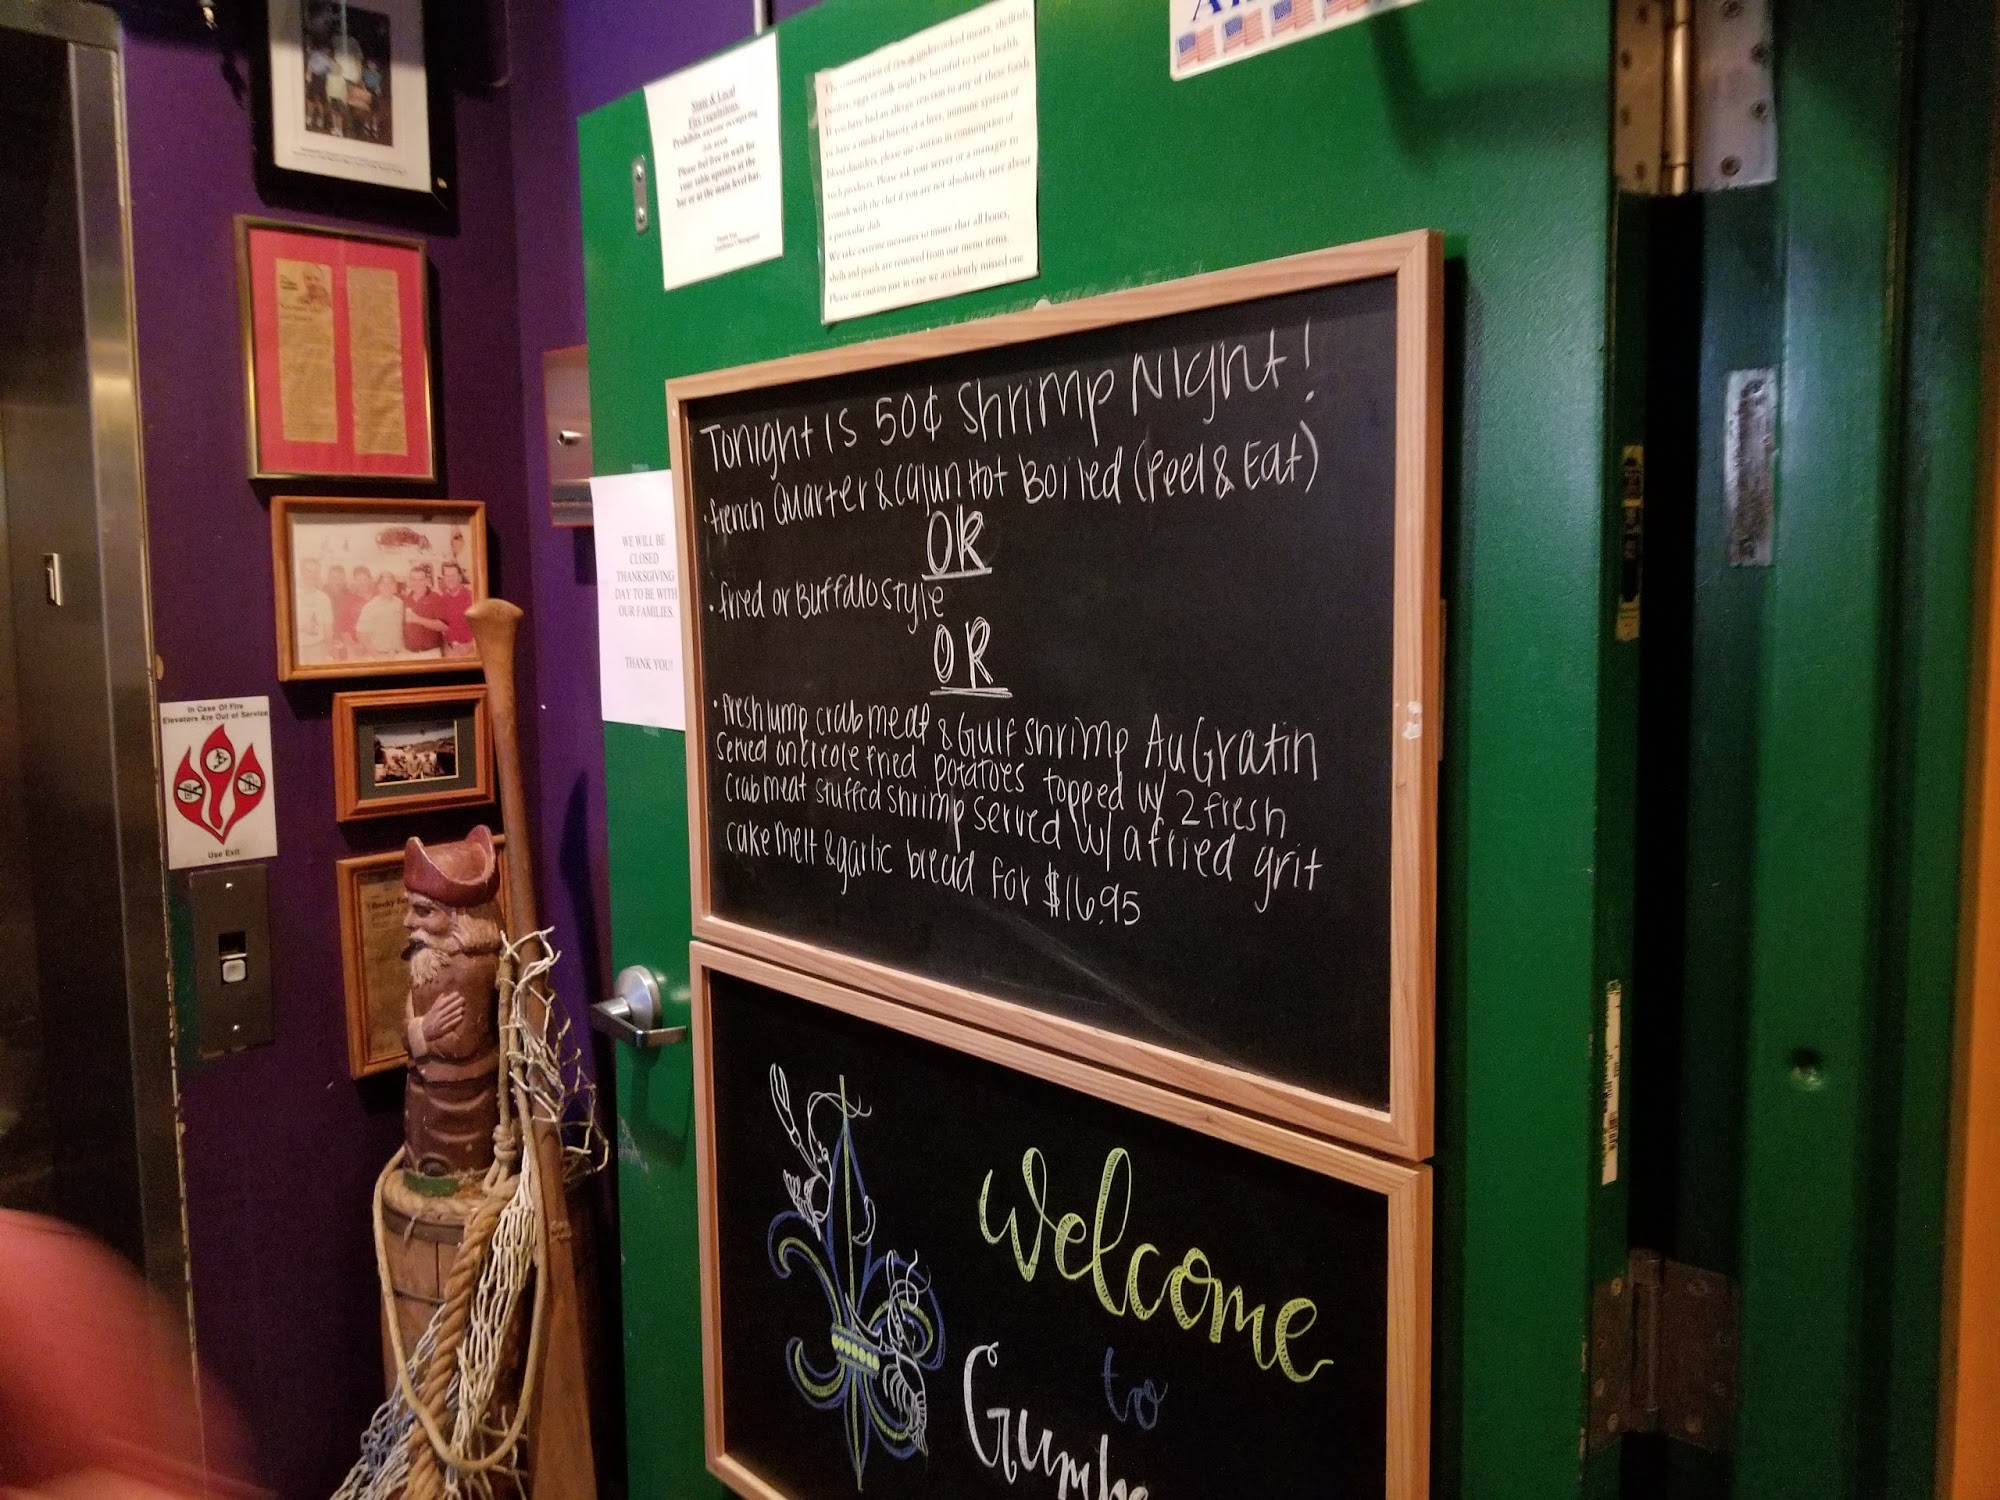 State & Local
Fire regulations,
Prohibits anyone occupying
an area
Please feel free to wait for
your table upstairs at the
bar or at the main level bar.
Thank You,
Management
The consumption of raw or undercooked meats, shellfish,
poultry, eggs or milk might be harmful to your health.
If you have had an allergic reaction to any of these foods
or have a medical history of a liver, immune system or
blood disorders, please use caution in consumption of
such products. Please ask your server or a manager to
consult with the chef if you are not absolutely sure about
a particular dish
We take extreme measures to insure that all bones,
shells and pearls are removed from our menu items.
Please use caution just in case we accidently missed one.
WE WILL BE
CLOSED
THANKSGIVING
DAY TO BE WITH
OUR FAMILIES.
THANK YOU!
In Case Of Fire
Elevators Are Out of Service
Use Exit
Tonight Is 50¢ Shrimp Night!
· French Quarter & Cajun Hot Boiled (Peel & Eat)
OR
· Fried or Buffalo Style
OR
· Fresh lump crab meat & Gulf Shrimp Au Gratin
served on creole fried potatoes topped w/ 2 fresh
crab meat stuffed shrimp served w/ a fried grit
cake melt & garlic bread for $16.95
Welcome
to
Gumb